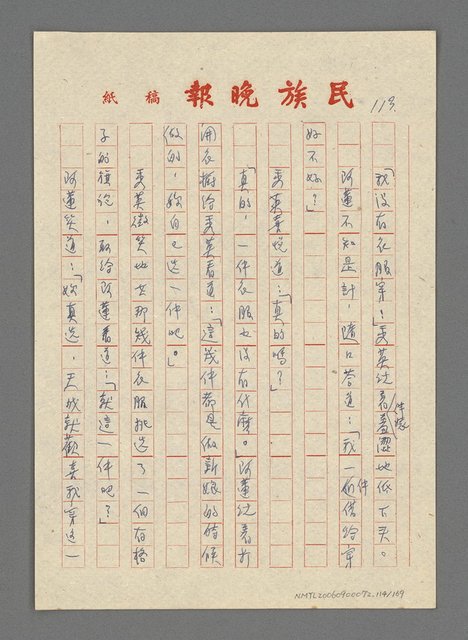 民族晚報 稿紙
113.
「我沒有衣服穿!」秀英說着羞澀地低下头。
件嫁
阿蓮不知是計,隨口答道:「我一件借給穿
好不好?」
秀英喜悅道:「真的嗎?」
「真的,一件衣服也沒有什麼。」阿蓮說着打
開衣櫥给秀英看道:「這幾件都是做新娘的時候
做的,妳自己选一件吧。」
秀英微笑地從那幾件衣服挑选了一個有格
子的旗袍,取给阿蓮看道:「就這一件吧?」
阿蓮笑道:「妳真选,天城就歡喜我穿這一
NMTL20060900072.114/169